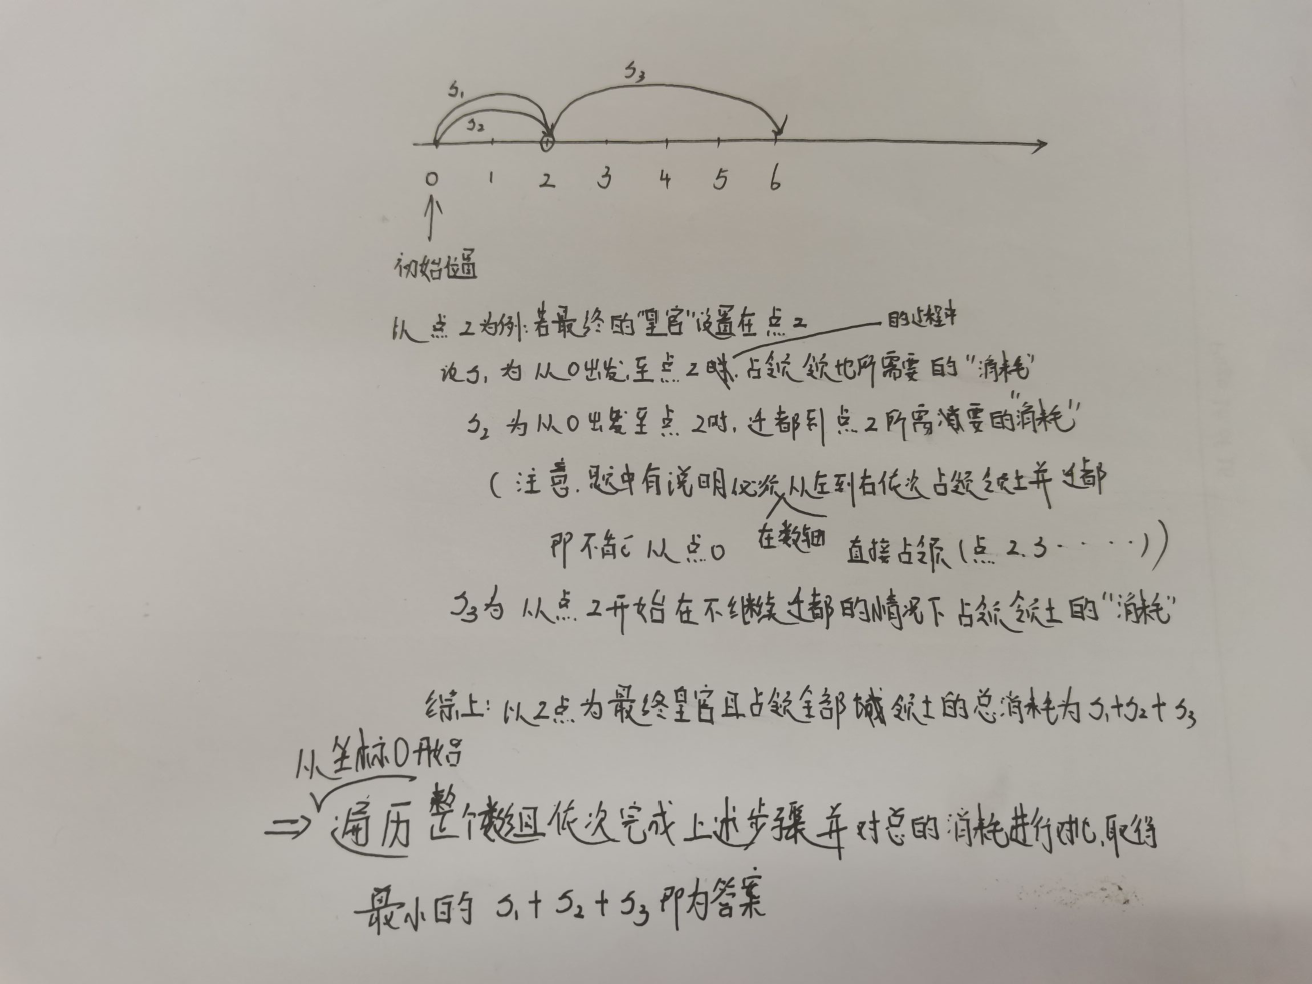 S₃
S₁
S₂
0 1 2 3 4 5 6
初始位置
以点2为例:若最终的"皇宫"设置在点2
的过程中
设S₁为从0出发,至点2时.占领领地所需要的"消耗"
S₂为从0出发至点2时,迁都到点2所需要的"消耗"
(注意.题中有说明必须从左到右依次占领领土并迁都
在数轴
即不能从点0直接占领(点2.3·····))
S₃为从点2开始在不继续迁都的情况下占领领土的"消耗"
综上:以2点为最终皇宫且占领全部领土的总消耗为S₁+S₂+S₃
从坐标0开始
⇒遍历整个数组依次完成上述步骤并对总的消耗进行对比,取得
最小的S₁+S₂+S₃即为答案